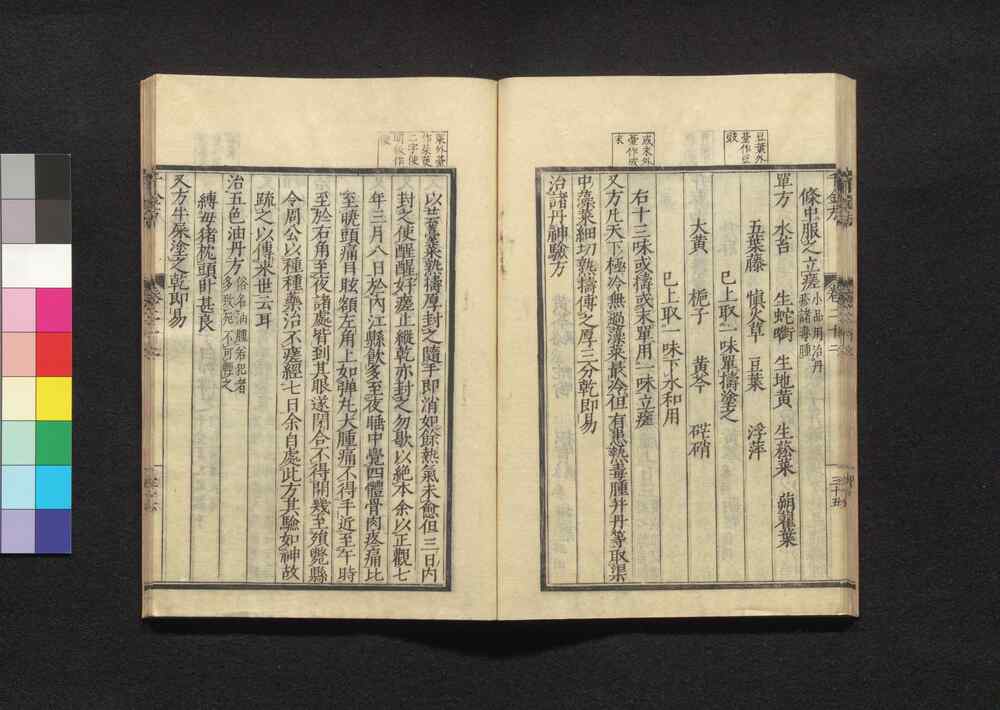 豆葉外
臺作豆
豉
或末外
臺作或
末
條中服之立瘥小品用治丹
幷諸毒腫
單方 水苔 生蛇銜 生地黃 生菘菜 蒴藋葉
五葉藤 慎火草 豆葉 浮萍
已上取一味單擣塗之
大黃 梔子 黃芩 硭硝
已上取一味下水和用
右十三味或擣或末單用一味立瘥
又方凡天下極冷無過藻菜最冷但有患熱毒腫幷丹等取渠
中藻菜細切熟擣傅之厚三分乾即易
治諸丹神驗方
千金方
卷二十二
三十五
菜外臺
作葉蔓
二字使
以芸薹菜熟擣厚封之隨手即消如餘熱氣未愈但三日內
封之使醒醒好瘥止縱乾亦封之勿歇以絕本余以正觀七
年三月八日於內江縣飲多至夜睡中覺四體骨肉疼痛比
至曉頭痛目眩額左角上如彈丸大腫痛不得手近至午時
至於右角至夜諸處皆到其眼遂閉合不得開幾至殞斃縣
令周公以種種藥治不瘥經七日余自處此方其驗如神故
疏之以傳來世云耳
治五色油丹方俗名油腫若犯者
多致死不可輕之
縛母猪枕頭臥甚良
又方牛屎塗之乾即易
千金方
卷二十二